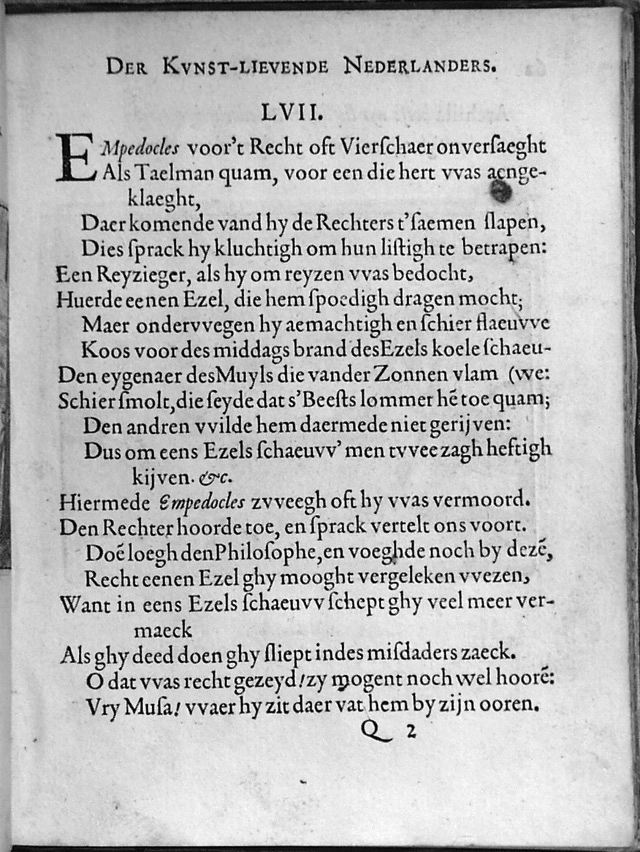 DER KVNST-LIEVENDE NEDERLANDERS.
LVII.
EMpedocles voor't Recht oft Vierſchaer onverſaeght
Als Taelman quam, voor een die hert vvas aenge-
klaeght,
Daer komende vand hy de Rechters t'ſaemen ſlapen,
Dies ſprack hy kluchtigh om hun liſtigh te betrapen:
Een Reyzieger, als hy om reyzen vvas bedocht,
Huerde eenen Ezel, die hem ſpoedigh dragen mocht;
Maer ondervvegen hy aemachtigh en ſchier flaeuvve
Koos voor des middags brand des Ezels koele ſchaeu-
Den eygenaer des Muyls die vander Zonnen vlam (we:
Schier ſmolt, die ſeyde dat s'Beeſts lommer hē toe quam;
Den andren vvilde hem daermede niet gerijven:
Dus om eens Ezels ſchaeuvv' men tvvee zagh heftigh
kijven. &c.
Hiermede Empedocles zvveegh oft hy vvas vermoord.
Den Rechter hoorde toe, en ſprack vertelt ons voort.
Doē loegh den Philoſophe, en voeghde noch by dezē,
Recht eenen Ezel ghy mooght vergeleken vvezen,
Want in eens Ezels ſchaeuvv ſchept ghy veel meer ver-
maeck
Als ghy deed doen ghy ſliept in des misdaders zaeck.
O dat vvas recht gezeyd! zy mogent noch wel hoorē:
Vry Muſa! vvaer hy zit daer vat hem by zijn ooren.
Q 2